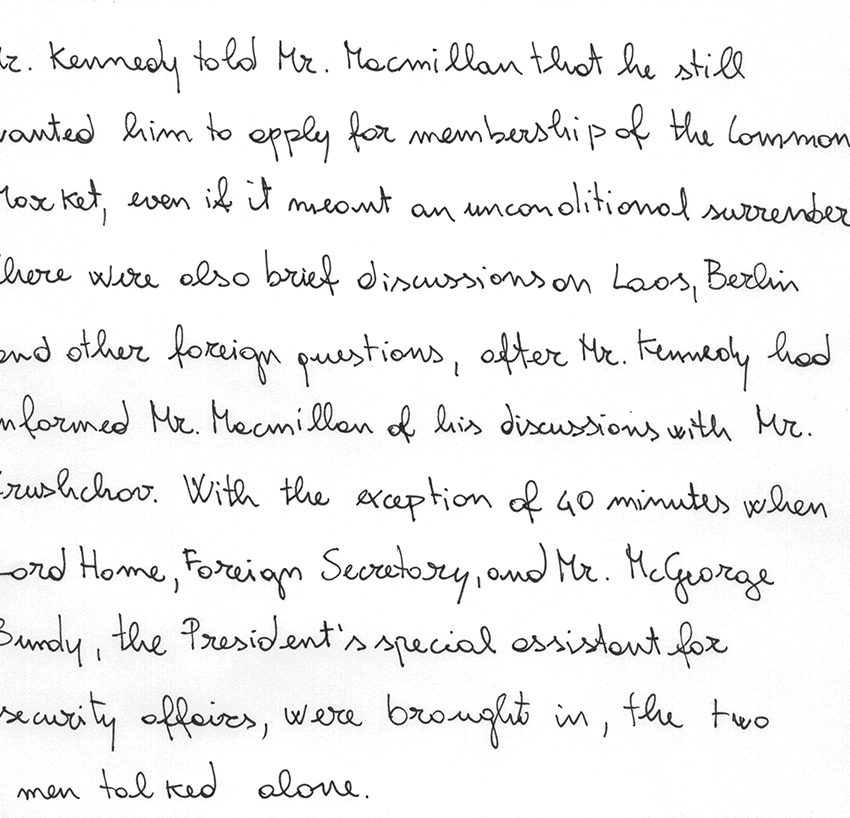 Mr. Kennedy told Mr. Macmillan that he still
wanted him to apply for membership of the Common
Market, even if it meant an unconditional surrender
There were also brief discussions on Laos, Berlin
and other foreign questions, after Mr. Kennedy had
informed Mr. Macmillan of his discussions with Mr.
Krushchov. With the exception of 40 minutes when
Lord Home, Foreign Secretory, and Mr. McGeorge
Bundy, the President's special assistant for
security affairs, were brought in, the two
men talked alone.